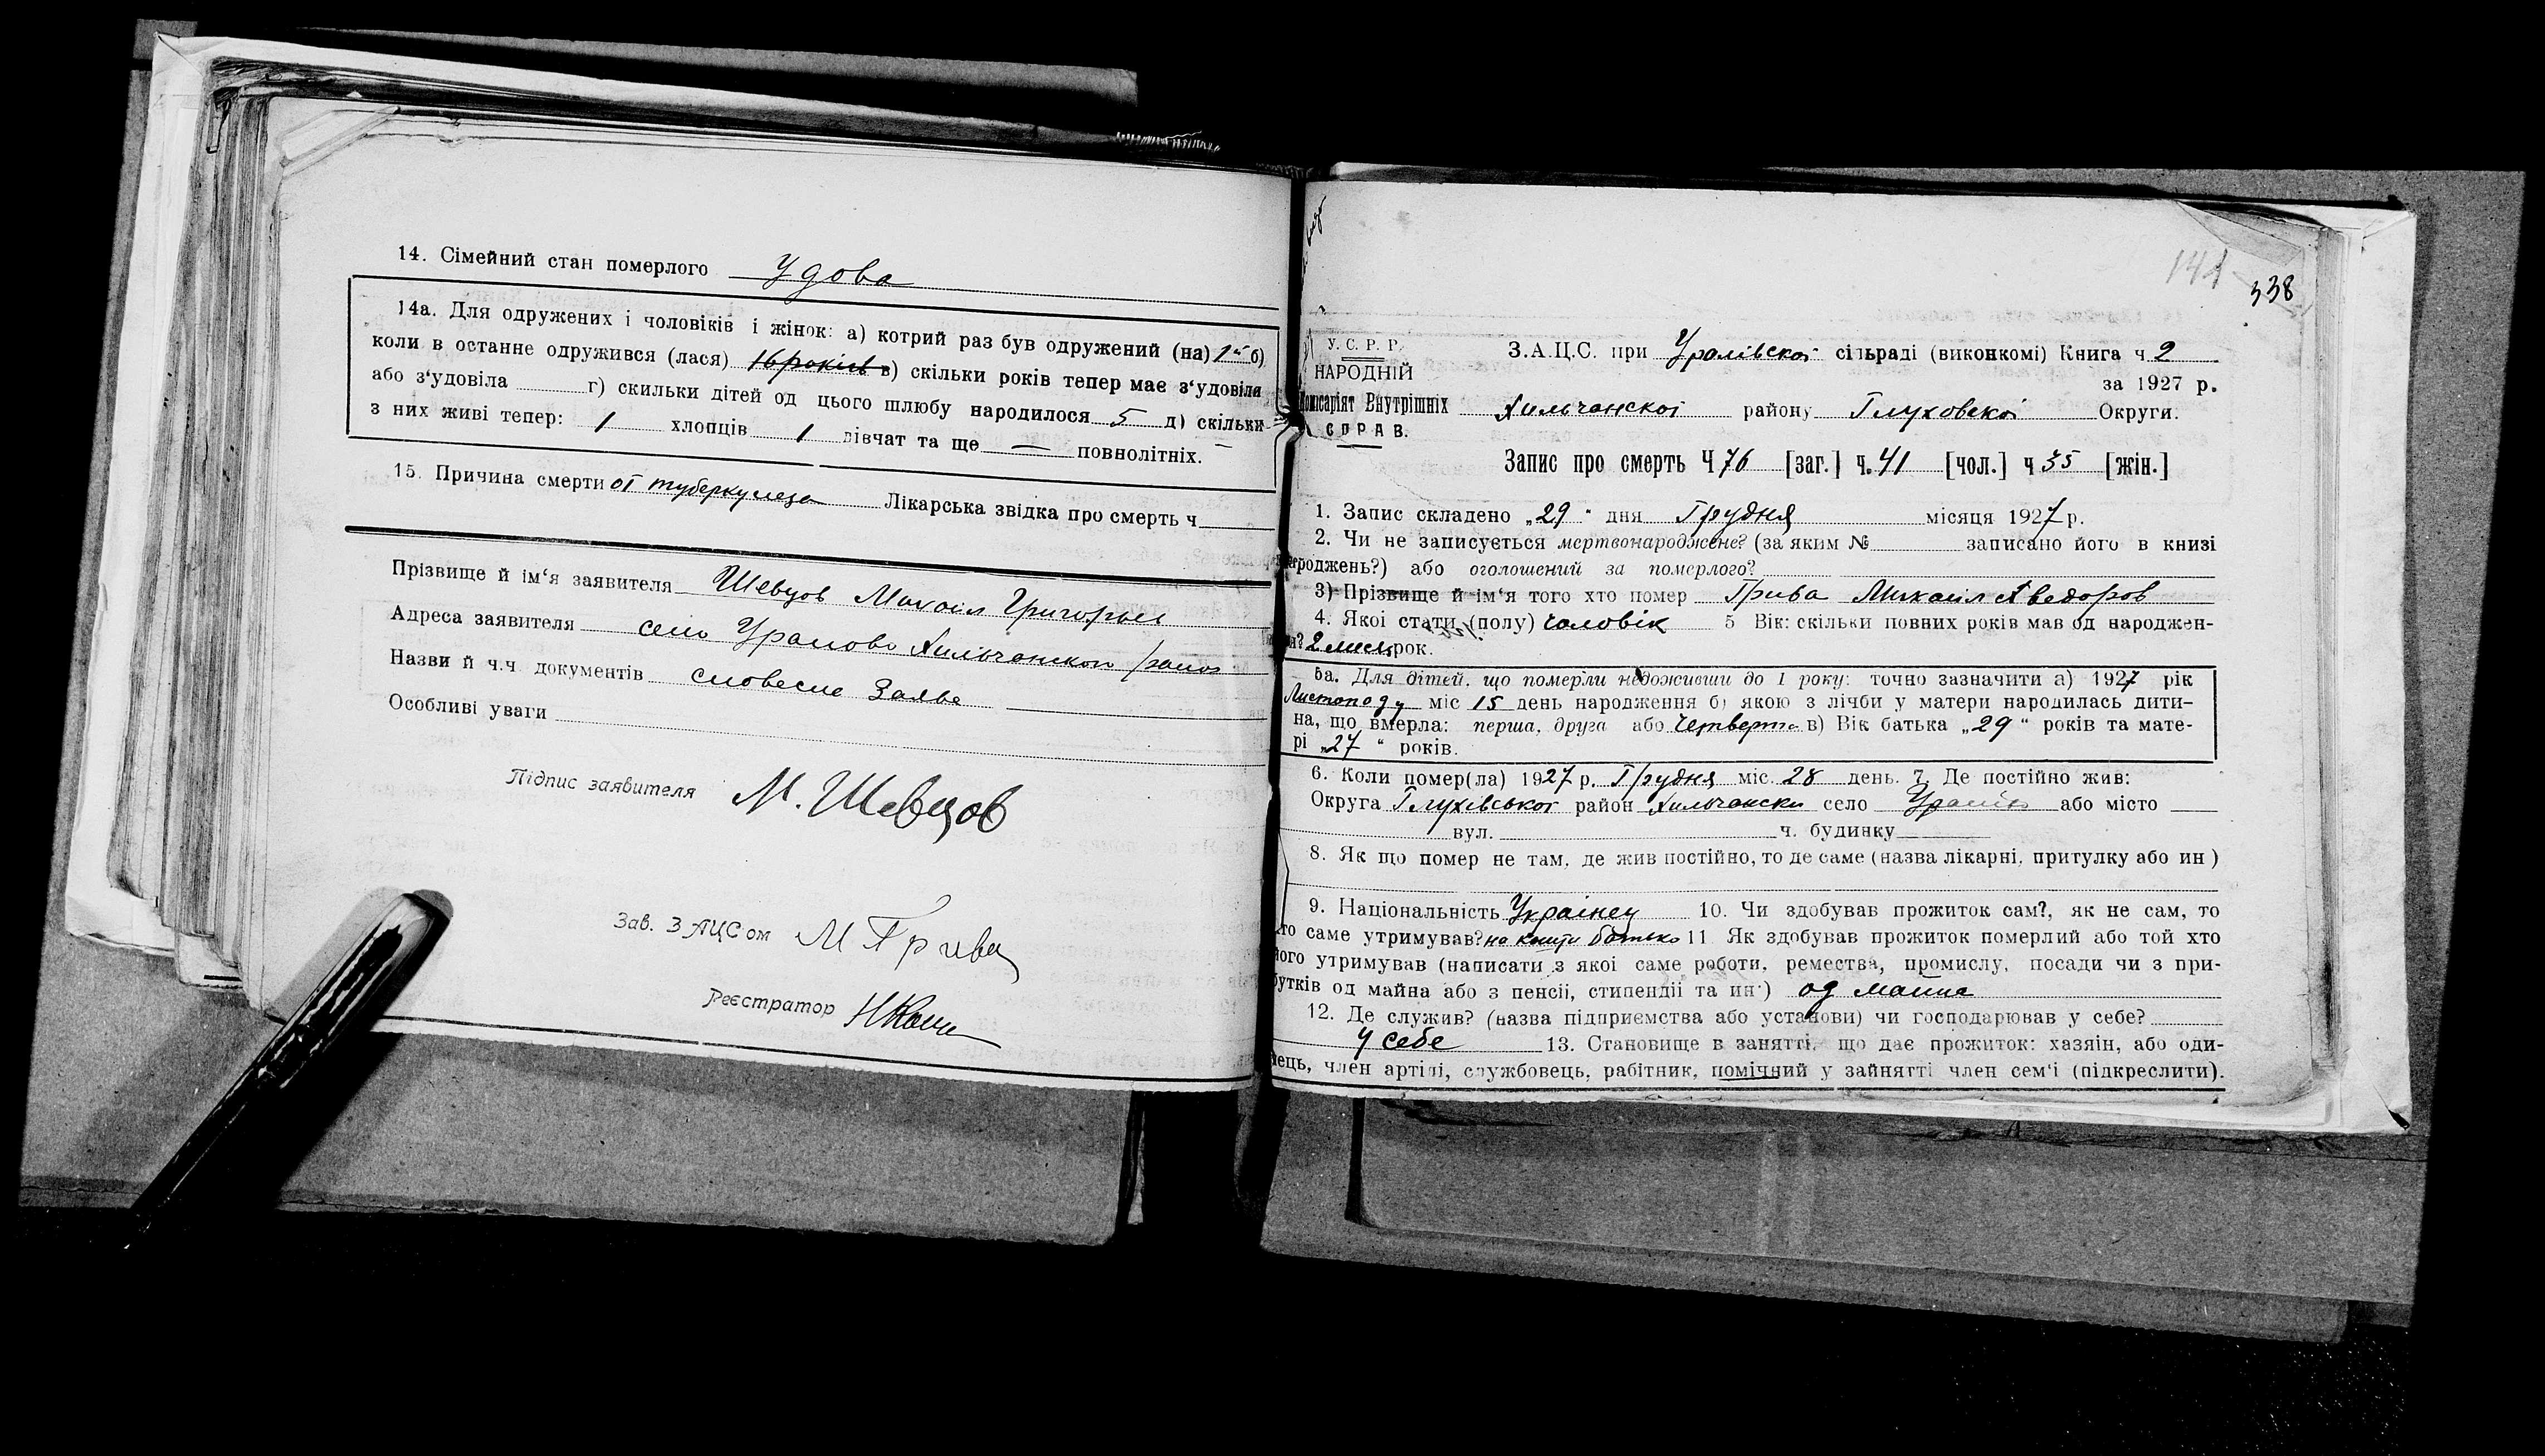 14. Сімейний стан померлого Удова
14а. Для одружених і чоловіків і жінок: а) котрий раз був одружений (на) 1й б)
коли в останне одружився (лася) 16 років в) скільки років тепер має з‘удовіла
або з‘удовіла г) скильки дітей од цього шлюбу народилося 5 д) скільки
з них живі тепер: 1 хлопців 1 дівчат та ще — повнолітніх.
15. Причина смерти от туберкулеза Лікарська звідка про смерть ч
Прізвище й ім‘я заявителя Шевцов Михаіл Григорьев
Адреса заявителя село Уралово
Назви й ч.ч. документів словесне Заяве
Особливі уваги
Підпис заявителя М. Шевцов
Зав. ЗАЦСом М Грива
Реєстратор
141
338
У. С. Р. Р.
НАРОДНІЙ
Комісаріят Внутрішніх
СПРАВ.
З.А.Ц.С. при Уралівскої сільраді (виконкомі) Книга ч 2
за 1927 р.
Хильчанскої району Глуховскої Округи.
Запис про смерть Ч 76 [заг.] ч. 41 [чол.] ч 35 [жін.]
1. Запис складено „29“ дня Грудня місяця 1927 р.
2. Чи не записується мертвонароджене? (за яким № записано його в книзі
народжень?) або оголошений за померлого?
3) Прізвище й ім‘я того хто помер Грива Михаіл
4. Якої стати (полу) чоловік 5 Вік: скільки повних років мав од народжен-
ня? 2 мися рок.
5а. Для дітей, що померли недоживши до 1 року: точно зазначити а) 1927 рік
Листопаду міс 15 день народження б) якою з лічби у матери народилась дити-
на, що вмерла: перша, друга або четверта в) Вік батька „29“ років та мате-
рі „27“ років.
6. Коли помер(ла) 1927 р. Грудня міс. 28 день. 7. Де постійно жив:
Округа Глухівської район Хильчански село або місто
вул. ч. будинку
8. Як що помер не там, де жив постійно, то де саме (назва лікарні, притулку або ин)
9. Національність Украінец 10. Чи здобував прожиток сам?, як не сам, то
хто саме утримував? на кошти батько 11 Як здобував прожиток померлий або той хто
його утримував (написати з якої саме роботи, ремества, промислу, посади чи з при-
бутків од майна або з пенсіі, стипендіі та ин) од маина
12. Де служив? (назва підприємства або установи) чи господарював у себе?
у себе 13. Становище в занятті, що дає прожиток: хазяін, або оди-
нець, член артілі, службовець, рабітник, помічний у зайнятті член сем‘і (підкреслити).